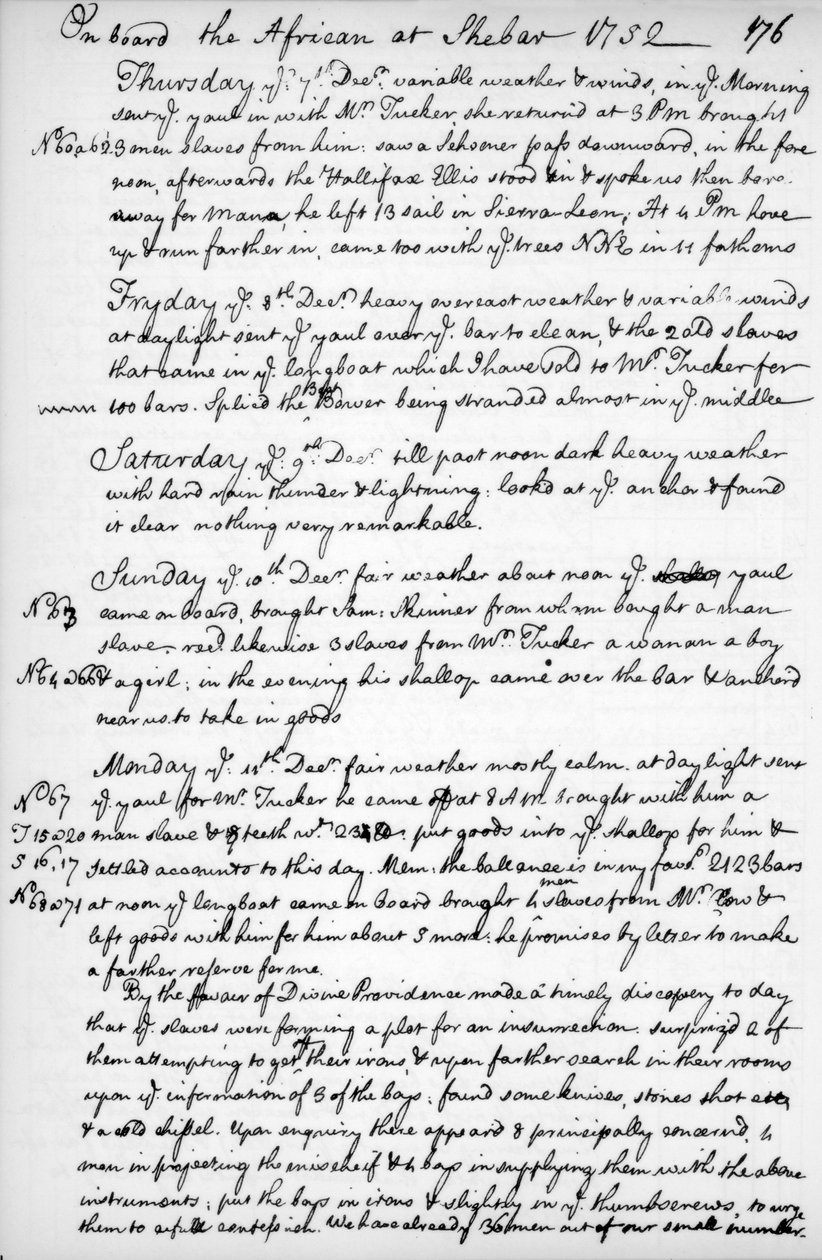 On board the African at Shebar 1752 176
Thursday ye. 7th Decr. variable weather & winds, in ye. Morning
sent ye. yaul in with Mr. Tucker, she return'd at 3 PM brought
No 60 a 62 3 men slaves from him: saw a Schooner pass downward, in the fore
noon, afterwards the Hallifax Ellis stood in & spoke us then bore
away for Mana, he left 13 sail in Sierra-Leon; At 4 PM hove
up & run farther in, came too with ye. trees NNE in 11 fathoms
Fryday ye. 8th Decr. heavy overcast weather & variable winds
at daylight sent ye. yaul over ye. bar to clean, & the 2 old slaves
that came in ye. longboat which I have sold to Mr. Tucker for
100 bars. Spliced the Best Bower being stranded almost in ye. middle
Saturday ye. 9th Decr. till past noon dark heavy weather
with hard rain thunder & lightning: look'd at ye. anchor & found
it clear nothing very remarkable.
Sunday ye. 10th Decr. fair weather about noon ye. yaul
No 63 came on board, brought Sam: Skinner from whom bought a man
slave - recd. likewise 3 slaves from Mr. Tucker a woman a boy
No 64 a 66 & a girl; in the evening his shallop came over the bar & anchor'd
near us to take in goods
Monday ye. 11th Decr. fair weather mostly calm. at daylight sent
No 67 ye. yaul for Mr. Tucker he came off at 8 AM brought with him a
T 15 a 20 man slave & 8 teeth wt. : put goods into ye. shallop for him &
S 16, 17 settled accounts to this day. Mem: the ballance is in my favr. 2123 bars
No 68 a 71 at noon ye longboat came on board brought 4 men slaves from Mr. &
left goods with him for him about 5 more: he promises by letter to make
a farther reserve for me.
By the favour of Divine Providence made a timely discovery to day
that ye. slaves were forming a plot for an insurrection. surpriz'd 2 of
them attempting to get off their irons, & upon farther search in their rooms
upon ye. information of 3 of the boys; found some knives, stones shot etc,
& a cold chissel. Upon enquiry there appeard 8 principally concernd, 4
men in projecting the mischeif & 4 boys in supplying them with the above
instruments; put the boys in irons & slightly in ye. thumbscrews, to urge
them to a full confession. We have already 36 men out of our small number.